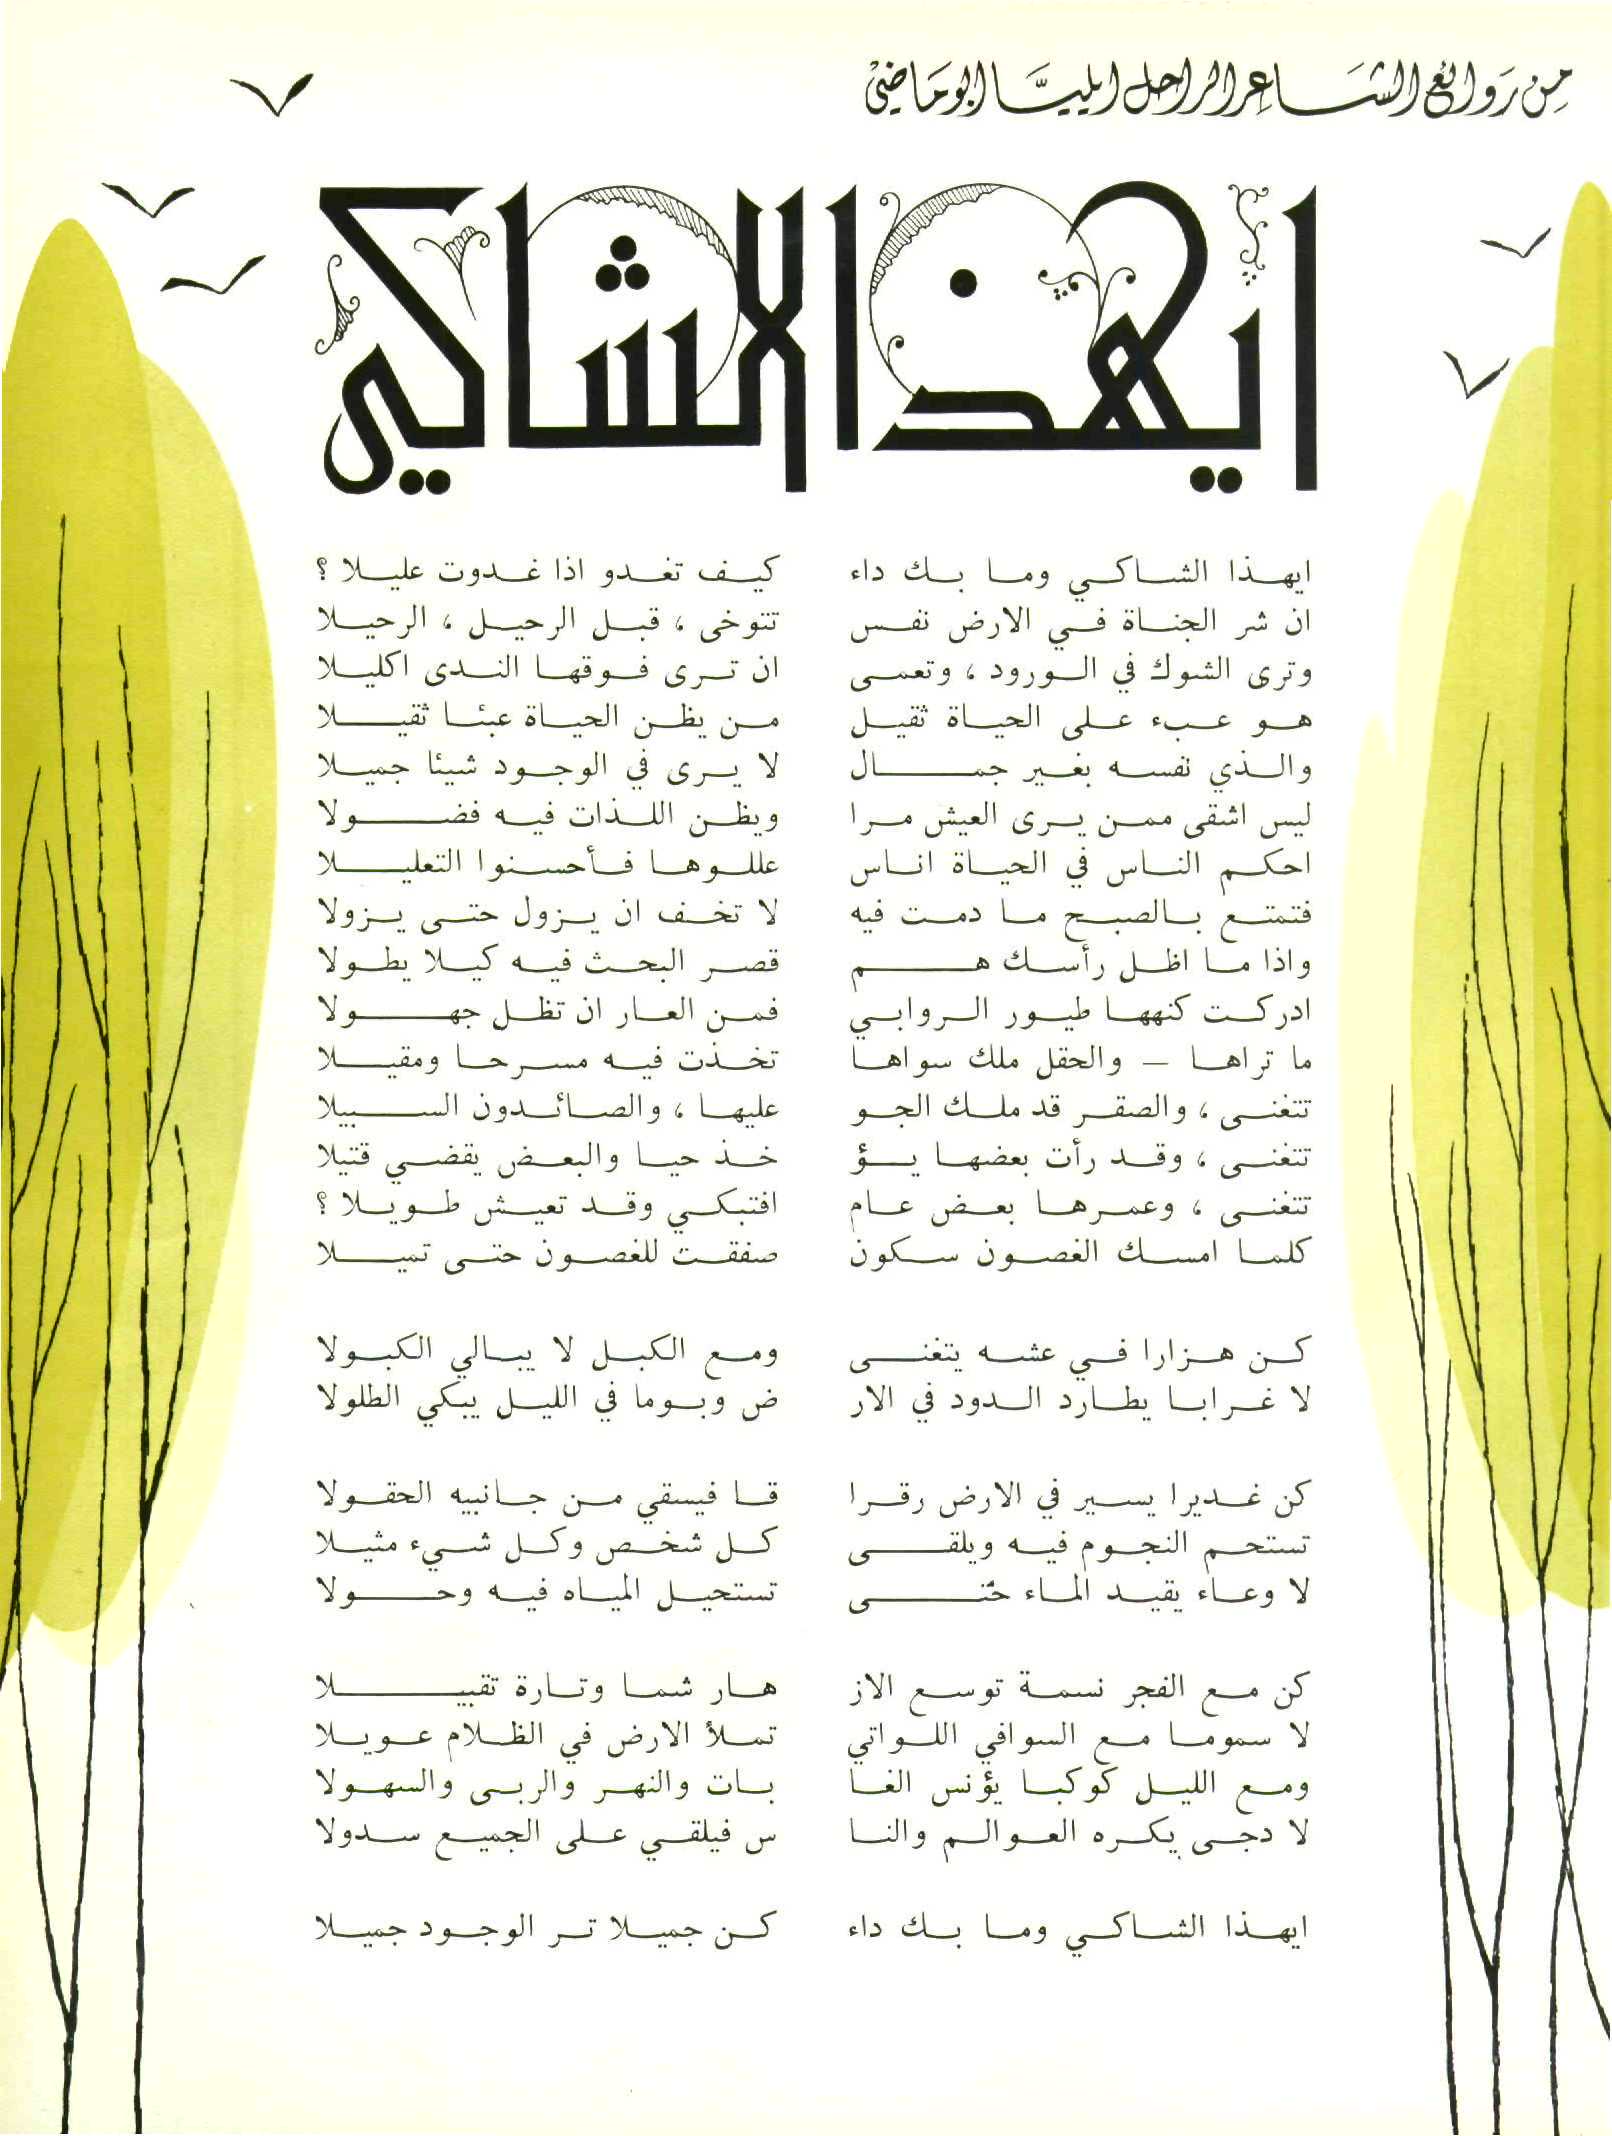 من روائع الشاعر الراحل ايليا ابو ماضي
ايهذا الشاكي
ايهذا الشاكي وما بك داء كيف تغدو اذا غدوت عليلا ؟
ان شر الجناة في الارض نفس تتوخى ، قبل الرحيل ، الرحيلا
وترى الشوك في الورود ، وتعمى ان ترى فوقها الندى اكليلا
هو عبء على الحياة ثقيل من يظن الحياة عبئا ثقيلا
والذي نفسه بغير جمال لا يرى في الوجود شيئا جميلا
ليس اشقى ممن يرى العيش مرا ويظن اللذات فيه فضولا
احكم الناس في الحياة اناس عللوها فأحسنوا التعليلا
فتمتع بالصبح ما دمت فيه لا تخف ان يزول حتى يزولا
واذا ما اظل رأسك هم قصر البحث فيه كيلا يطولا
ادركت كنهها طيور الروابي فمن العار ان تظل جهولا
ما تراها – والحقل ملك سواها تخذت فيه مسرحا ومقيلا
تتغنى ، والصقر قد ملك الجو عليها ، والصائدون السبيلا
تتغنى ، وقد رأت بعضها يؤ خذ حيا والبعض يقضي قتيلا
تتغنى ، وعمرها بعض عام افتبكي وقد تعيش طويلا ؟
كلما امسك الغصون سكون صفقت للغصون حتى تميلا
كن هزارا في عشه يتغنى ومع الكبل لا يبالي الكبولا
لا غرابا يطارد الدود في الار ض وبوما في الليل يبكي الطلولا
كن غديرا يسير في الارض رقرا قا فيسقي من جانبيه الحقولا
تستحم النجوم فيه ويلقى كل شخص وكل شيء مثيلا
لا وعاء يقيد الماء حتى تستحيل المياه فيه وحولا
كن مع الفجر نسمة توسع الاز هار شما وتارة تقبيلا
لا سموما مع السوافي اللواتي تملأ الارض في الظلام عويلا
ومع الليل كوكبا يؤنس الغا بات والنهر والربى والسهولا
لا دجى يكره العوالم والنا س فيلقي على الجميع سدولا
ايهذا الشاكي وما بك داء كن جميلا تر الوجود جميلا